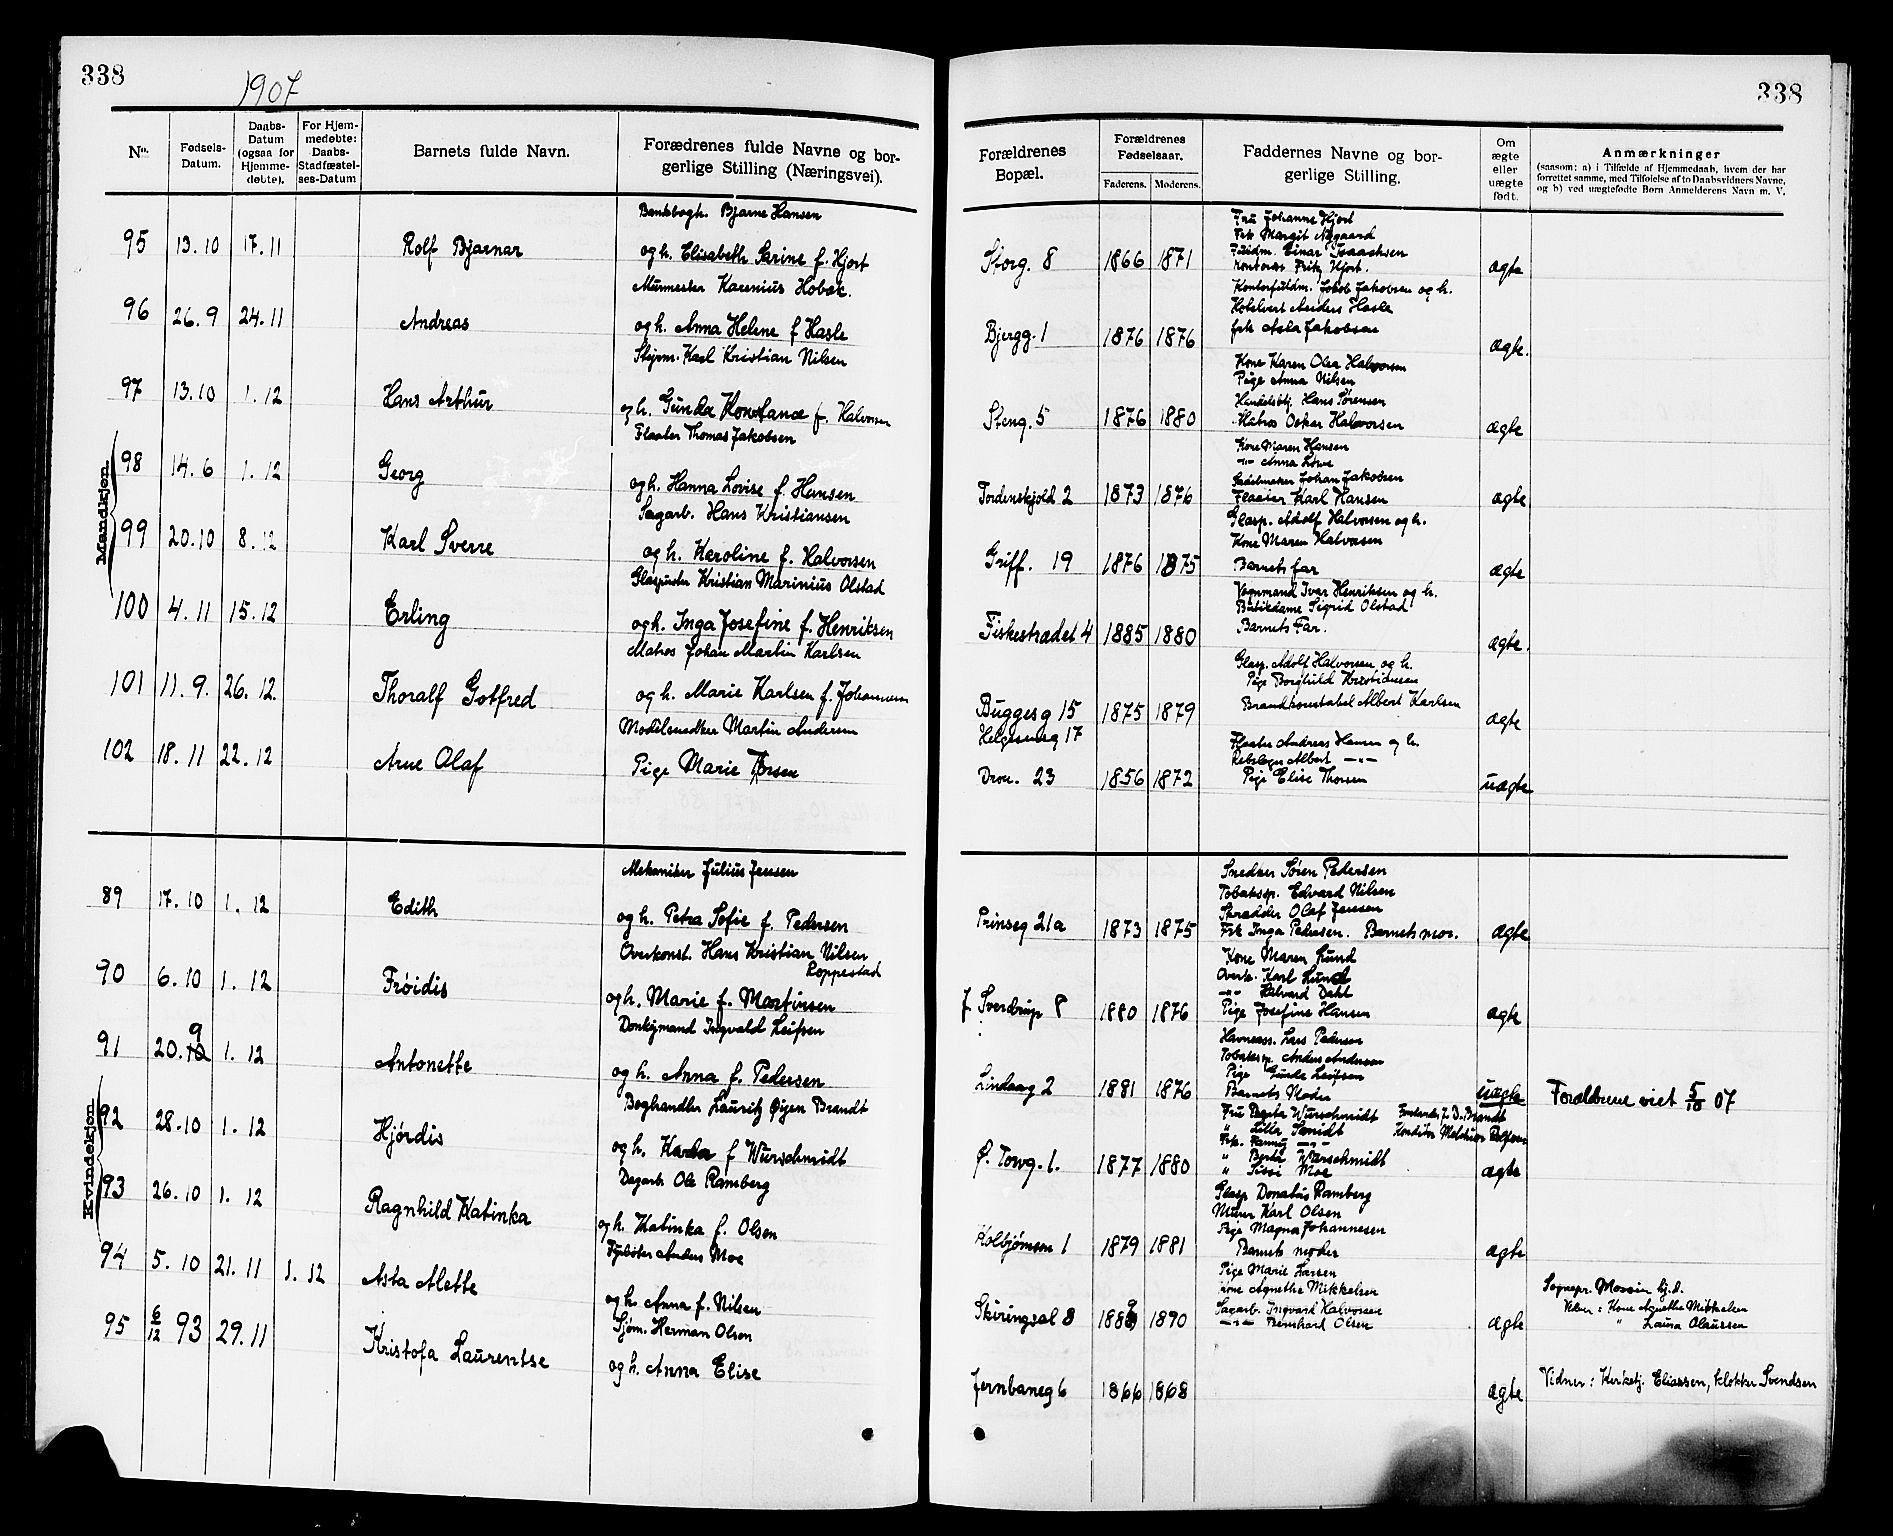 338
1907
No.
Fødsels-
Datum.
Daabs-
Datum
(ogsaa for
Hjemme-
døbte).
For Hjem-
medøbte:
Daabs-
Stadfæstel-
ses-Datum
Barnets fulde Navn.
Forældrenes fulde Navne og bor-
gerlige Stilling (Næringsvei).
Mandkjøn
Bjarne Hansen
95 13.10 17.11 Rolf Bjarnar og h. Elisabeth Sarine f. Hjort
Murmester Karenius Hobæk.
96 26.9 24.11 Andreas og h. Anna Helene f Hasle
Styrm. Karl Kristian Nilsen
97 13.10 1.12 Hans Arthur og h. Gunda Konstance f. Halvorsen
Flaater Thomas Jakobsen
98 14.6 1.12 Georg og h. Hanna Lovise f. Hansen
Sagarb. Hans Kristiansen
99 20.10 8.12 Karl Sverre og h. Karoline f. Halvorsen
Glaspuster Kristian Marinius Olstad
100 4.11 15.12 Erling og h. Inga Josefine f. Henriksen
Matros Johan Martin Karlsen
101 11.9. 26.12 Thoralf Gotfred og h. Marie Karlsen f. Johannesen
Modelsnedker Martin Andersen
102 18.11 22.12 Arne Olaf Pige Marie Torsen
Kvindekjøn
Mekaniker Julius Jensen
89 17.10 1.12 Edith og h. Petra Sofie f. Pedersen
Overkonst. Hans Kristian Nilsen
Roppestad
90 6.10 1.12 Frøidis og h. Marie f. Martinsen
Donkymand Ingvald Leifsen
91 20.10 9 1.12 Antonette og h. Anna f. Pedersen
Boghandler Lauritz Øigen Brandt
92 28.10 1.12 Hjørdis og h. Karla f Wurschmidt
Dagarb. Ole Ramberg
93 26.10 1.12 Ragnhild Katinka og h. Katinka f. Olsen
Fyrbøter Anders Moe
94 5.10 21.11 1.12 Asta Alette og h. Anna f. Nilsen
Sjøm. Herman Olsen
95 6/12 93 29.11 Kristofa Laurentse og h. Anna Elise
338
Forældrenes
Bopæl.
Forældrenes
Fødselsaar.
Faderens. Moderens.
Faddernes Navne og bor-
gerlige Stilling.
Om
ægte
eller
uægte
født.
Anmærkninger
(saasom: a) i Tilfælde af Hjemmedaab, hvem der har
forrettet samme, med Tilføielse af to Daabsvidners Navne,
og b) ved uægtefødte Børn Anmelderens Navn m. V.
Fru Johanne Hjort
Frk Margit Aagaard
Fuldm. Einar Isaachsen
Storg. 8 1866 1871 Kontorist Fritz Hjort. ægte
Kontorfuldm. Jakob Jakobsen og h.
Hotelvert Anders Hasle
Bjergg. 1 1876 1876 frk Asla Jakobsen ægte.
Kone Karen Olea Halvorsen
Pige Anna Nilsen
Handelsbtj. Hans Sørensen
Steng. 5 1876 1880 Matros Oskar Halvorsen ægte
Kone Maren Hansen
-"- Anna Lowe
Sadelmaker Johan Jakobsen
Tordenskjold 2 1873 1876 Flaaier Karl Hansen ægte
Glasp. Adolf Halvorsen og h.
Kone Maren Halvorsen
Griff. 19 1876 1875 Barnets far ægte
Vognmand Ivar Henriksen og h.
Butikdame Sigrid Olstad
Fiskestrædet 4 1885 1880 Barnets Far. ægte.
Glasp. Adolf Halvorsen og h.
Pige Borghild Kristiansen
Buggesg 15 1875 1879 Brandkonstabel Albert Karlsen ægte
Helgesensg 17
Flaater Andreas Hansen og h.
Rebslager Albert -"-
Dron. 23 1856 1872 Pige Elise Thorsen uægte
Snedker Søren Pedersen
Tobaksp. Edvard Nilsen
Skrædder Olaf Jensen
Prinseg 21a 1873 1875 Frk Inga Pedersen. Barnets mor. ægte
Kone Maren Lund
Overk. Karl Lund
-"- Halvard Dahl
J Sverdrup 8 1880 1876 Pige Josefine Hansen ægte
Havneass. Lars Pedersen
Tobaksp. Anders Andersen
Pige Gunda Leifsen
Lindeag 2 1881 1876 Barnets Moder uægte Forældrene viet 5/10 07
Fru Dagta Wurschmidt
" Lilla Smidt Konditor Melchior Rolfsen
Frk. Fanny -"-
" Berta Wurschmidt
Ø. Torvg. 1. 1877 1880 " Sissi Moe ægte
Glasp Donatus Ramberg
Murer Karl Olsen
Pige Magna Johannesen
Kolbjørnsen 1 1879 1881 Barnets moder ægte
Pige Marie Larsen
Kone Agnethe Mikkelsen
Sagarb. Ingvard Halvorsen
Skiringsal 8 1889 1890 -"- Bernhard Olsen ægte
Sognepr. Hj.d.
Vidner: Kone Agnethe Mikkelsen
" Laura Olaussen
Jernbaneg 6 1866 1868 ægte Vidner: Kirketj. Eliassen, klokker Svendsen